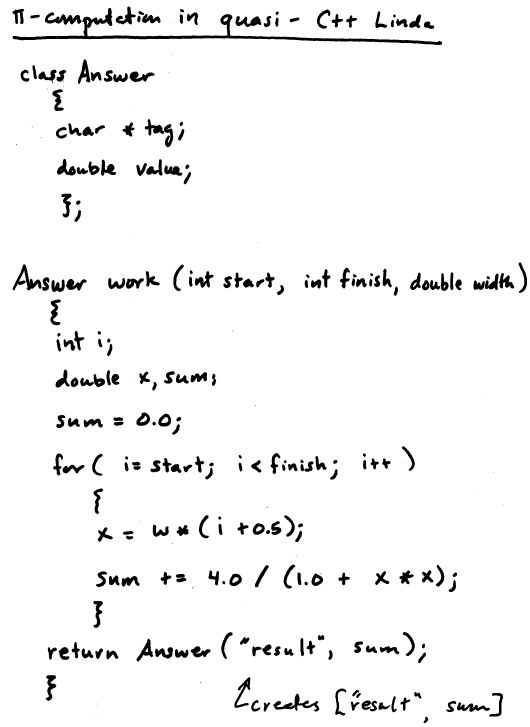 π-computation in quasi-C++ Linda
class Answer
{
char * tag;
double value;
};
Answer work (int start, int finish, double width)
{
int i;
double x, sum;
sum = 0.0;
for ( i= start; i < finish; i++ )
{
x = w * ( i + 0.5);
sum += 4.0 / (1.0 + x * x);
}
return Answer ("result", sum);
}
creates ["result", sum]